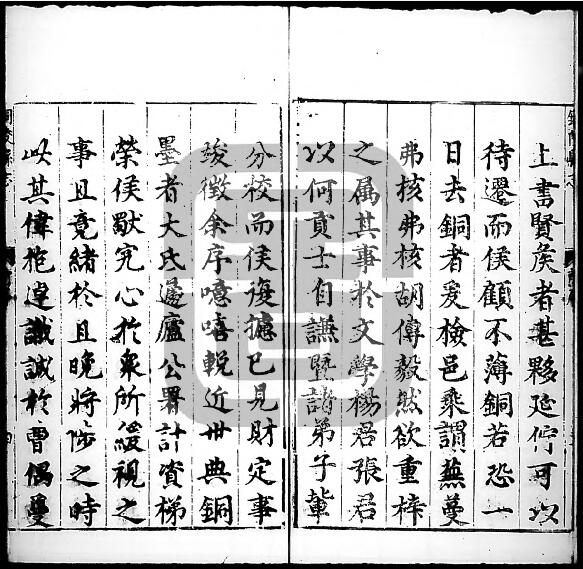 上書賢矦者甚夥延佇可以
待遷而侯顧不薄銅若恐一
日去銅者爰檢邑乘謂蕪蔓
弗核弗核胡傳毅然欲重梓
之属其事於文學楊君張君
以何貢士自謙曁諸弟子輩
分校而侯復攄已見財定事
竣徵余序噫嘻輓近世典銅
墨者大氐遽廬公署計資梯
榮侯究心於衆所緩視之
事且竟緒於旦晚將陟之時
此其偉抱遠識誠於曹偶敻